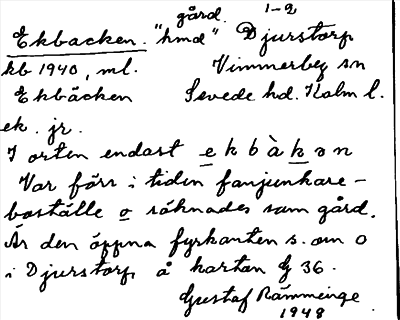 gård. 1-2
Ekbacken. "hmd" Djurstorp
kb 1940, ml. Vimmerby sn
Ekbäcken Sevede hd. Kalm l.
ek. jr.
I orten endast e k b à k ə n
Var förr i tiden fanjunkare-
boställe o räknades som gård.
Är den öppna fyrkanten s. om o
i Djurstorp å kartan G 36.
Gustaf Rämminge
1948